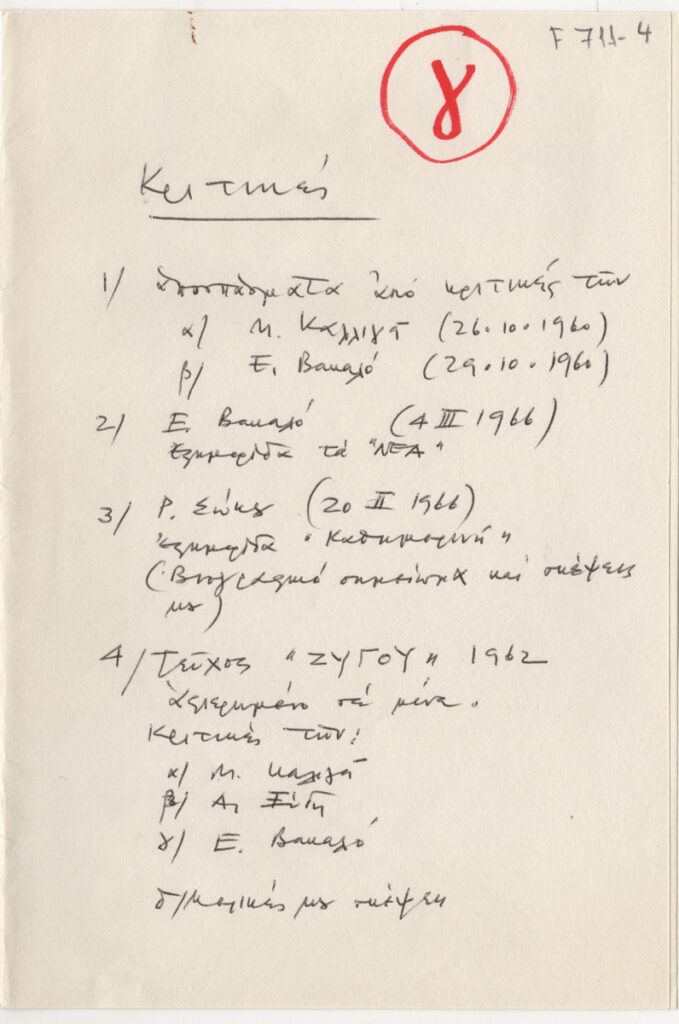 F 711-4
γ
Κριτικές
1/ Ἀποσπάσματα ἀπό κριτικές τῶν
α/ Μ. Καλλιγᾶ (26.10.1960)
β/ Ε. Βακαλό (29.10.1960)
2/ Ε. Βακαλό (4 III 1966)
Ἐφημερίδα τά "ΝΕΑ"
3/ Ρ. Σώκου (20 II 1966)
Ἐφημερίδα "Καθημερινή"
(Βιογραφικό σημείωμα καί σκέψεις
μου)
4/ Τεῦχος "ΖΥΓΟΥ" 1962
Ἀφιερωμένο σέ μένα.
Κριτικές τῶν:
α/ Μ. Καλιγᾶ
β/ Α. Ξύδη
γ/ Ε. Βακαλό
δ/ μερικές μου σκέψεις